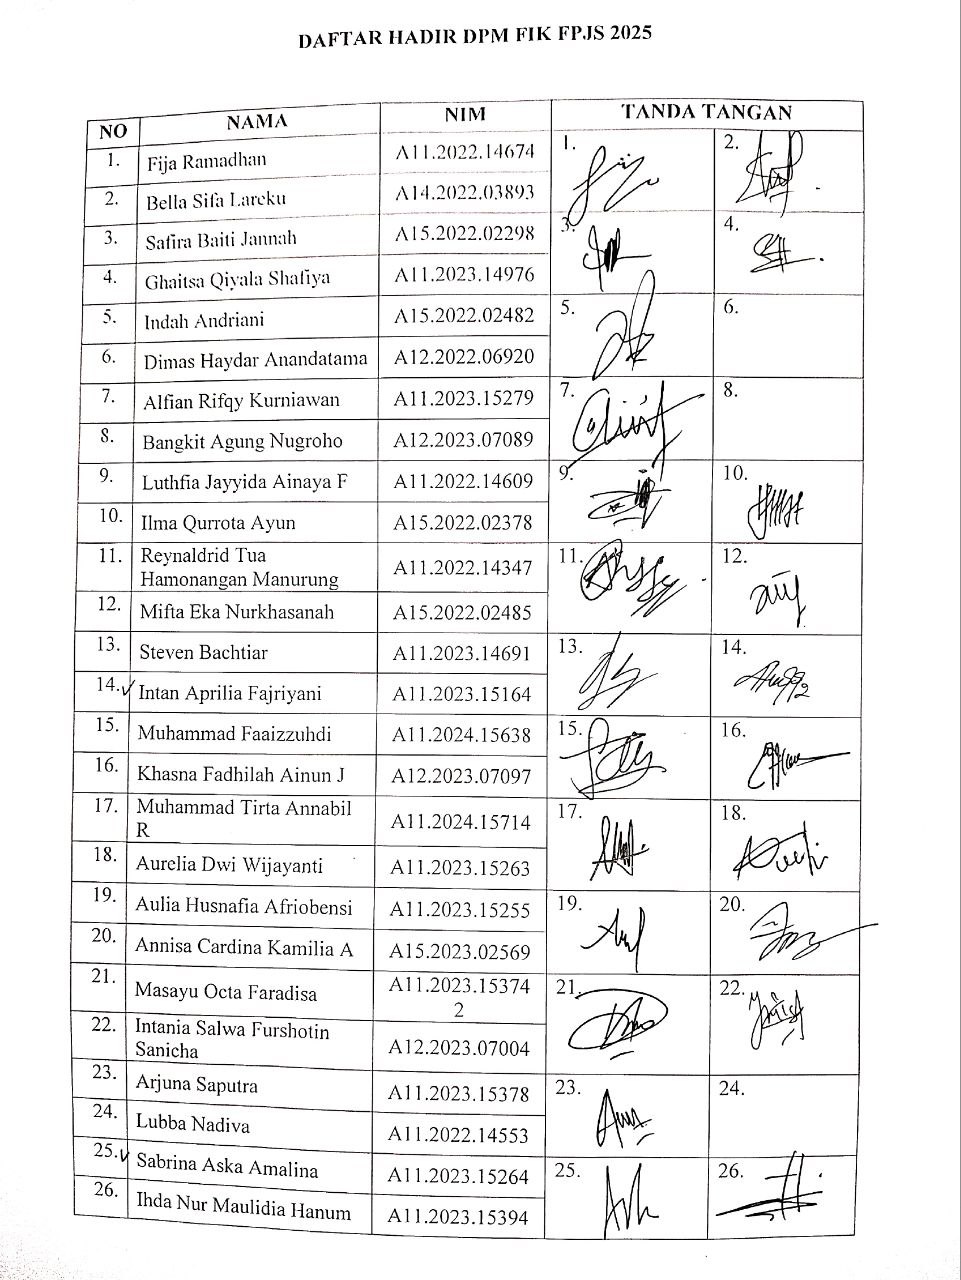 DAFTAR HADIR DPM FIK FPJS 2025
NO NAMA NIM TANDA TANGAN
1. Fija Ramadhan A11.2022.14674 1. 2.
2. Bella Sifa Lareku A14.2022.03893
3. Safira Baiti Jannah A15.2022.02298 3. 4.
4. Ghaitsa Qiyala Shafiya A11.2023.14976
5. Indah Andriani A15.2022.02482 5. 6.
6. Dimas Haydar Anandatama A12.2022.06920
7. Alfian Rifqy Kurniawan A11.2023.15279 7. 8.
8. Bangkit Agung Nugroho A12.2023.07089
9. Luthfia Jayyida Ainaya F A11.2022.14609 9. 10.
10. Ilma Qurrota Ayun A15.2022.02378
11. Reynaldrid Tua
Hamonangan Manurung A11.2022.14347 11. 12.
12. Mifta Eka Nurkhasanah A15.2022.02485
13. Steven Bachtiar A11.2023.14691 13. 14.
14. Intan Aprilia Fajriyani A11.2023.15164
15. Muhammad Faaizzuhdi A11.2024.15638 15. 16.
16. Khasna Fadhilah Ainun J A12.2023.07097
17. Muhammad Tirta Annabil
R A11.2024.15714 17. 18.
18. Aurelia Dwi Wijayanti A11.2023.15263
19. Aulia Husnafia Afriobensi A11.2023.15255 19. 20.
20. Annisa Cardina Kamilia A A15.2023.02569
21. Masayu Octa Faradisa A11.2023.15374 21. 22.
2
22. Intania Salwa Furshotin
Sanicha A12.2023.07004
23. Arjuna Saputra A11.2023.15378 23. 24.
24. Lubba Nadiva A11.2022.14553
25. Sabrina Aska Amalina A11.2023.15264 25. 26.
26. Ihda Nur Maulidia Hanum A11.2023.15394